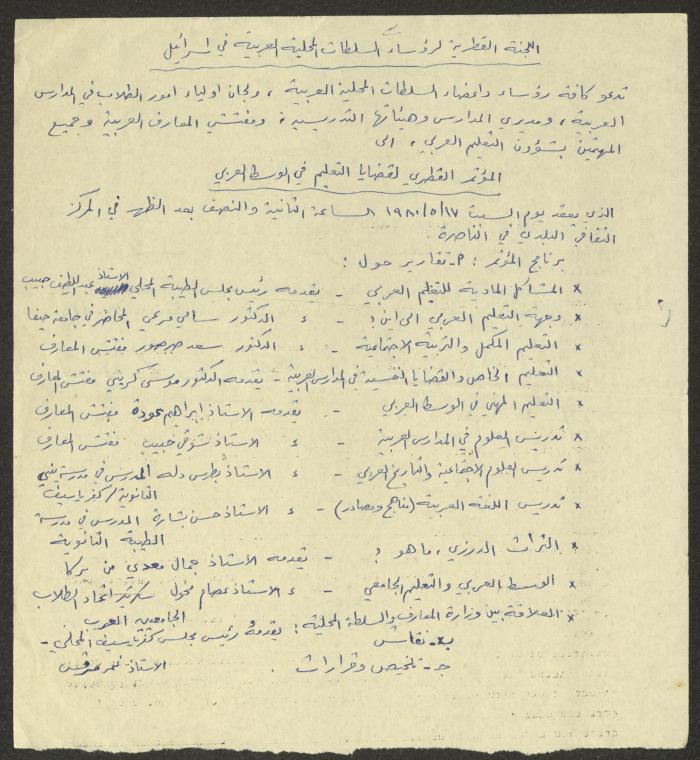 اللجنة القطرية لرؤساء السلطات المحلية العربية في اسرائيل
تدعو كافة رؤساء واعضاء السلطات المحلية العربية ، ولجان اولياء امور الطلاب في المدارس
العربية ، ومديري المدارس وهيئاتها التدريسية ، ومفتشي المعارف العربية وجميع
المهتمين بشؤون التعليم العربي ، الى
المؤتمر القطري لقضايا التعليم في الوسط العربي
الذي يعقد يوم السبت ١٩٨٠/٥/١٧ الساعة الثانية والنصف بعد الظهر في المركز
الثقافي البلدي في الناصرة .
برنامج المؤتمر : أ- تقارير حول :
* المشاكل المادية للتعليم العربي - يقدمه رئيس مجلس الطيبة المحلي الاستاذ عبد اللطيف حبيب
* وجهة التعليم العربي الى اين ؟ - ء الدكتور سامي مرعي المحاضر في جامعة حيفا
* التعليم المكمل والتربية الاجتماعية - ء الدكتور سعد صرصور مفتش المعارف
* التعليم الخاص والقضايا النفسية في المدارس العربية - يقدمه الدكتور موسى كريني مفتش المعارف
* التعليم المهني في الوسط العربي - يقدمه الاستاذ ابراهيم عودة مفتش المعارف
* تدريس العلوم في المدارس العربية - ء الاستاذ شوقي حبيب مفتش المعارف
* تدريس العلوم الاجتماعية والتاريخ العربي - ء الاستاذ بطرس دله المدرس في مدرسة يني
الثانوية / كفر ياسيف
* تدريس اللغة العربية (مناهج ومصادر) - ء الاستاذ حسن بشارة المدرس في مدرسة
الطيبة الثانوية
* التراث الدرزي ، ما هو ؟ - يقدمه الاستاذ جمال معدي من يركا
* الوسط العربي والتعليم الجامعي - ء الاستاذ عصام مخول سكرتير اتحاد الطلاب
الجامعيين العرب
* العلاقة بين وزارة المعارف والسلطة المحلية : يقدمه رئيس مجلس كفر ياسيف المحلي -
الاستاذ نمر مرقس
ب- نقاش
ج- تلخيص وقرارات